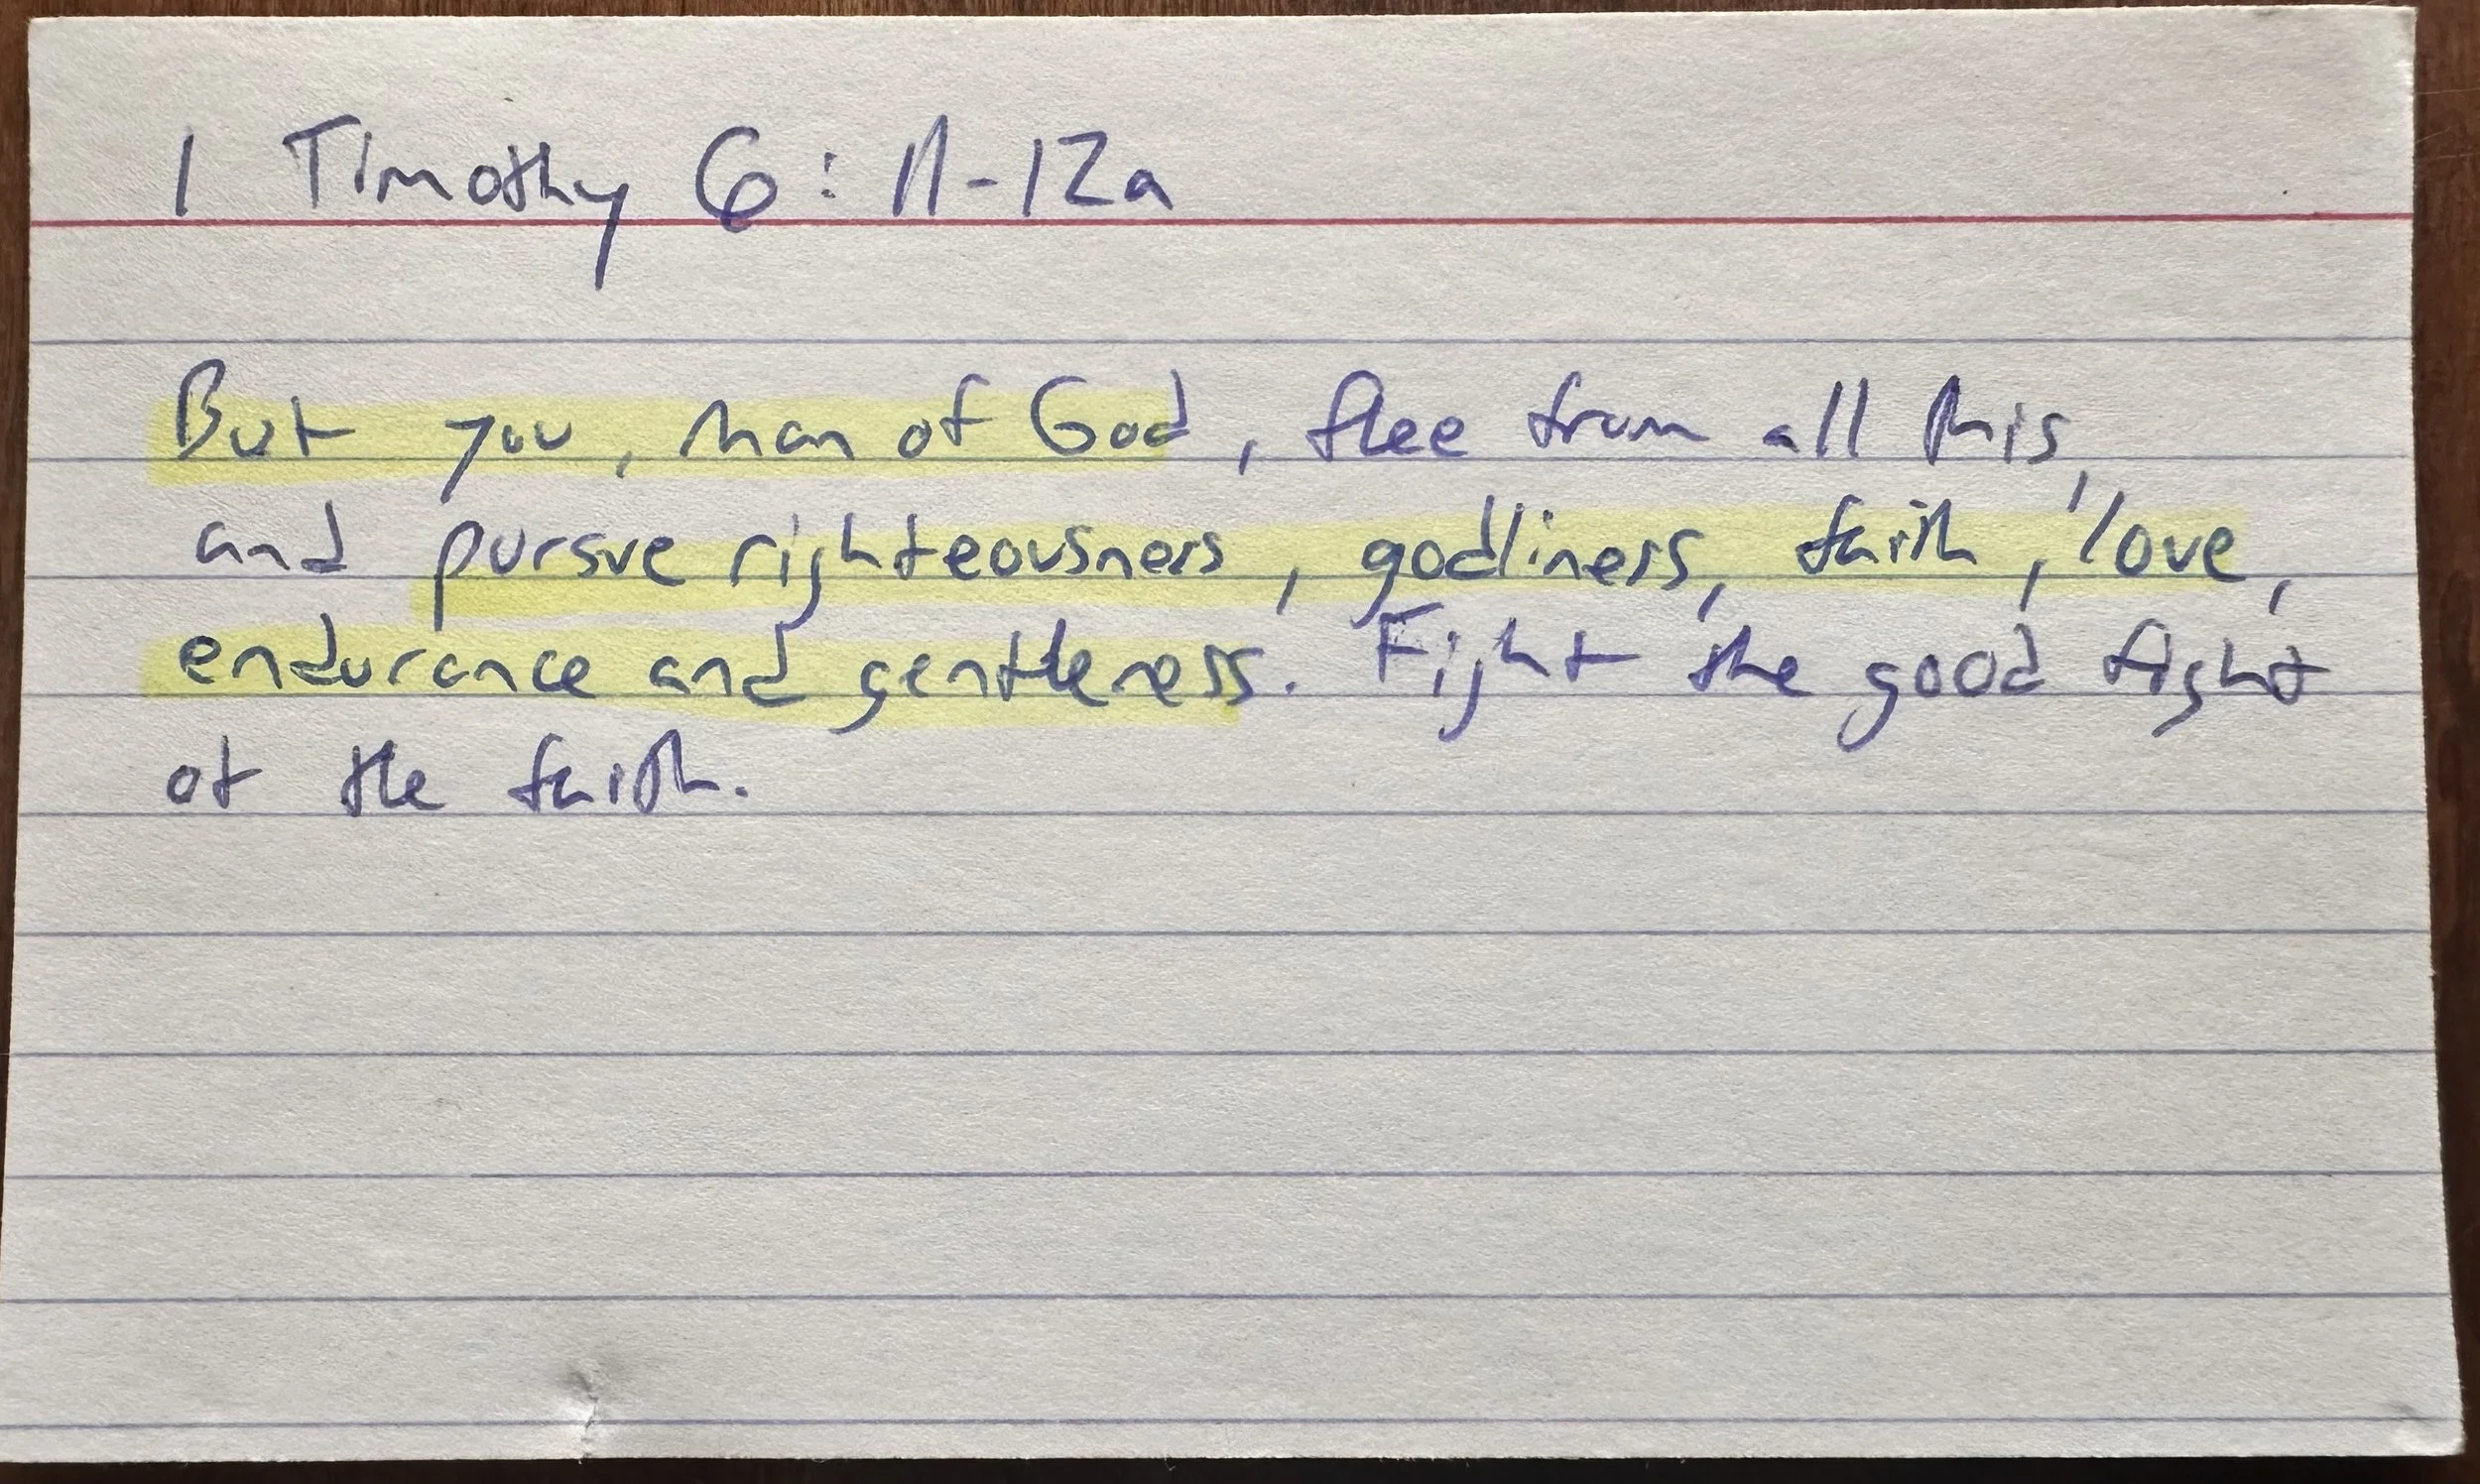 1 Timothy 6:11-12a
But you, man of God, flee from all this,
and pursue righteousness, godliness, faith, love,
endurance and gentleness. Fight the good fight
of the faith.